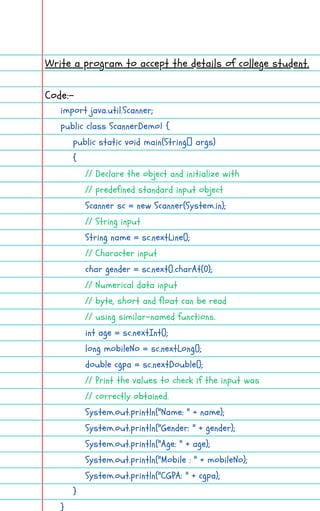 Write a program to accept the details of college student.
Code:-
import java.util.Scanner;
public class ScannerDemo1 {
public static void main(String[] args)
{
// Declare the object and initialize with
// predefined standard input object
Scanner sc = new Scanner(System.in);
// String input
String name = sc.nextLine();
// Character input
char gender = sc.next().charAt(0);
// Numerical data input
// byte, short and float can be read
// using similar-named functions.
int age = sc.nextInt();
long mobileNo = sc.nextLong();
double cgpa = sc.nextDouble();
// Print the values to check if the input was
// correctly obtained.
System.out.println("Name: " + name);
System.out.println("Gender: " + gender);
System.out.println("Age: " + age);
System.out.println("Mobile : " + mobileNo);
System.out.println("CGPA: " + cgpa);
}
}